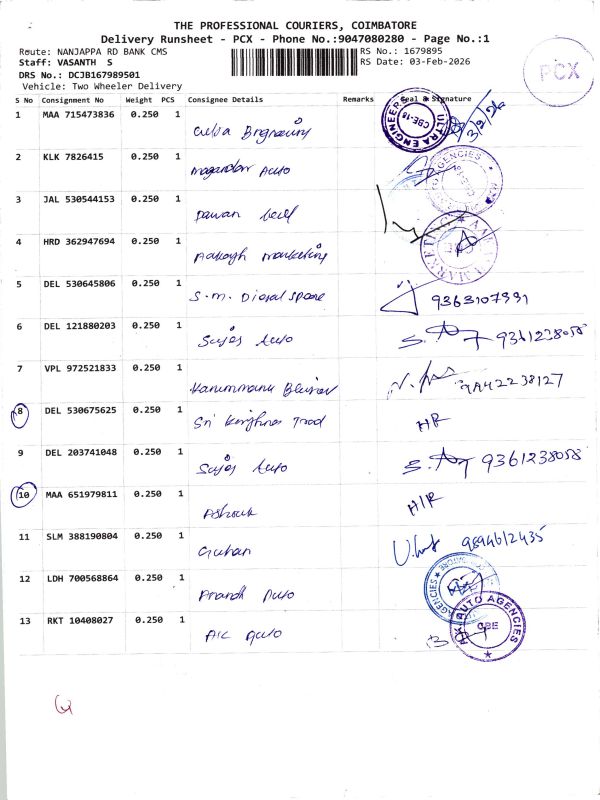 THE PROFESSIONAL COURIERS, COIMBATORE
Delivery Runsheet - PCX - Phone No.:9047080280 - Page No.:1
Route: NANJAPPA RD BANK CMS
RS No.: 1679895
Staff: VASANTH S
RS Date: 03-Feb-2026
DRS No.: DCJB167989501
Vehicle: Two Wheeler Delivery
PCX
S No Consignment No Weight PCS Consignee Details Remarks Seal & Signature
1 MAA 715473836 0.250 1 ULTRA ENGINEERS CBE-18
2 KLK 7826415 0.250 1 Auto AGENCIES
3 JAL 530544153 0.250 1 Pawan
4 HRD 362947694 0.250 1 Aakash marketing MARKETING
5 DEL 530645806 0.250 1 S.M. Diesal spare 9363107991
6 DEL 121880203 0.250 1 Sujes Auto 9361238058
7 VPL 972521833 0.250 1 9442238127
8 DEL 530675625 0.250 1 Sri Krishna Trad HR
9 DEL 203741048 0.250 1 Sujes Auto 9361238058
10 MAA 651979811 0.250 1 Ashok H/R
11 SLM 388190804 0.250 1 Guhan 9894612435
12 LDH 700568864 0.250 1 Anandh Auto AGENCIES
13 RKT 10408027 0.250 1 AK Auto AUTO AGENCIES CBE